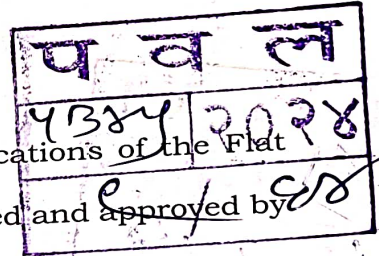 प व ल
२०२४
cations of the Flat
ed and approved by